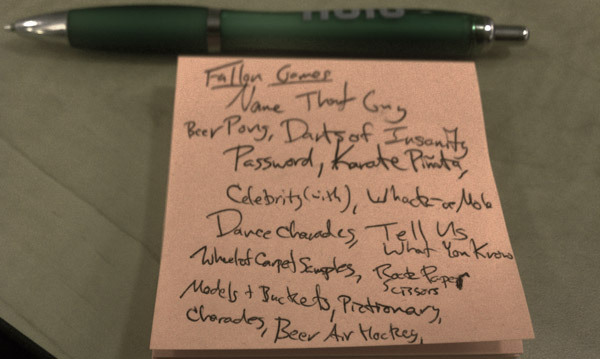 Fallon Games
Name That Guy
Beer Pong, Darts of Insanity
Password, Karate Piñata,
Celebrity (with), Whack-a-Mole
Dance Charades, Tell Us
What You Know
Wheel of Carpet Samples, Rock Paper
Scissors
Models + Buckets, Pictionary,
Charades, Beer Air Hockey,